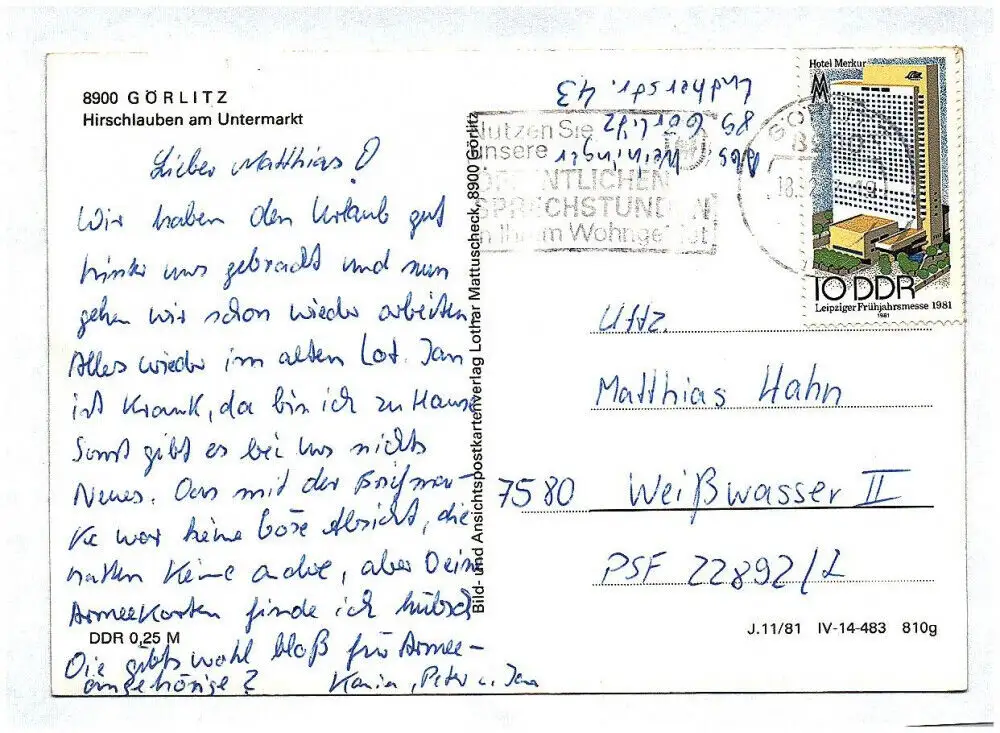 8900 GÖRLITZ
Hirschlauben am Untermarkt
Lieber Matthias!
Wir haben den Urlaub gut
hinter uns gebracht und nun
gehen wir schon wieder arbeiten
Alles wieder im alten Lot. Jan
ist Krank, da bin ich zu Hause
Sonst gibt es bei uns nichts
Neues. Das mit der Briefmar-
ke war keine böse Absicht, die
hatten keine andre, aber Deine
Armeekarten finde ich hübsch
DDR 0,25 M
Die gibts wohl bloß für Armee-
angehörige? Karin, Peter u. Jan
Bild- und Ansichtspostkartenverlag Lothar Mattuscheck, 8900 Görlitz
Abs. Weininger
89 Görlitz
Lutherstr. 43
Nutzen Sie
unsere
ÖFFENTLICHEN
SPRECHSTUNDEN
in Ihrem Wohngebiet
Hotel Merkur
M
10 DDR
Leipziger Frühjahrsmesse 1981
1981
Uffz.
Matthias Hahn
7580 Weißwasser II
PSF 22892/L
J.11/81 IV-14-483 810g